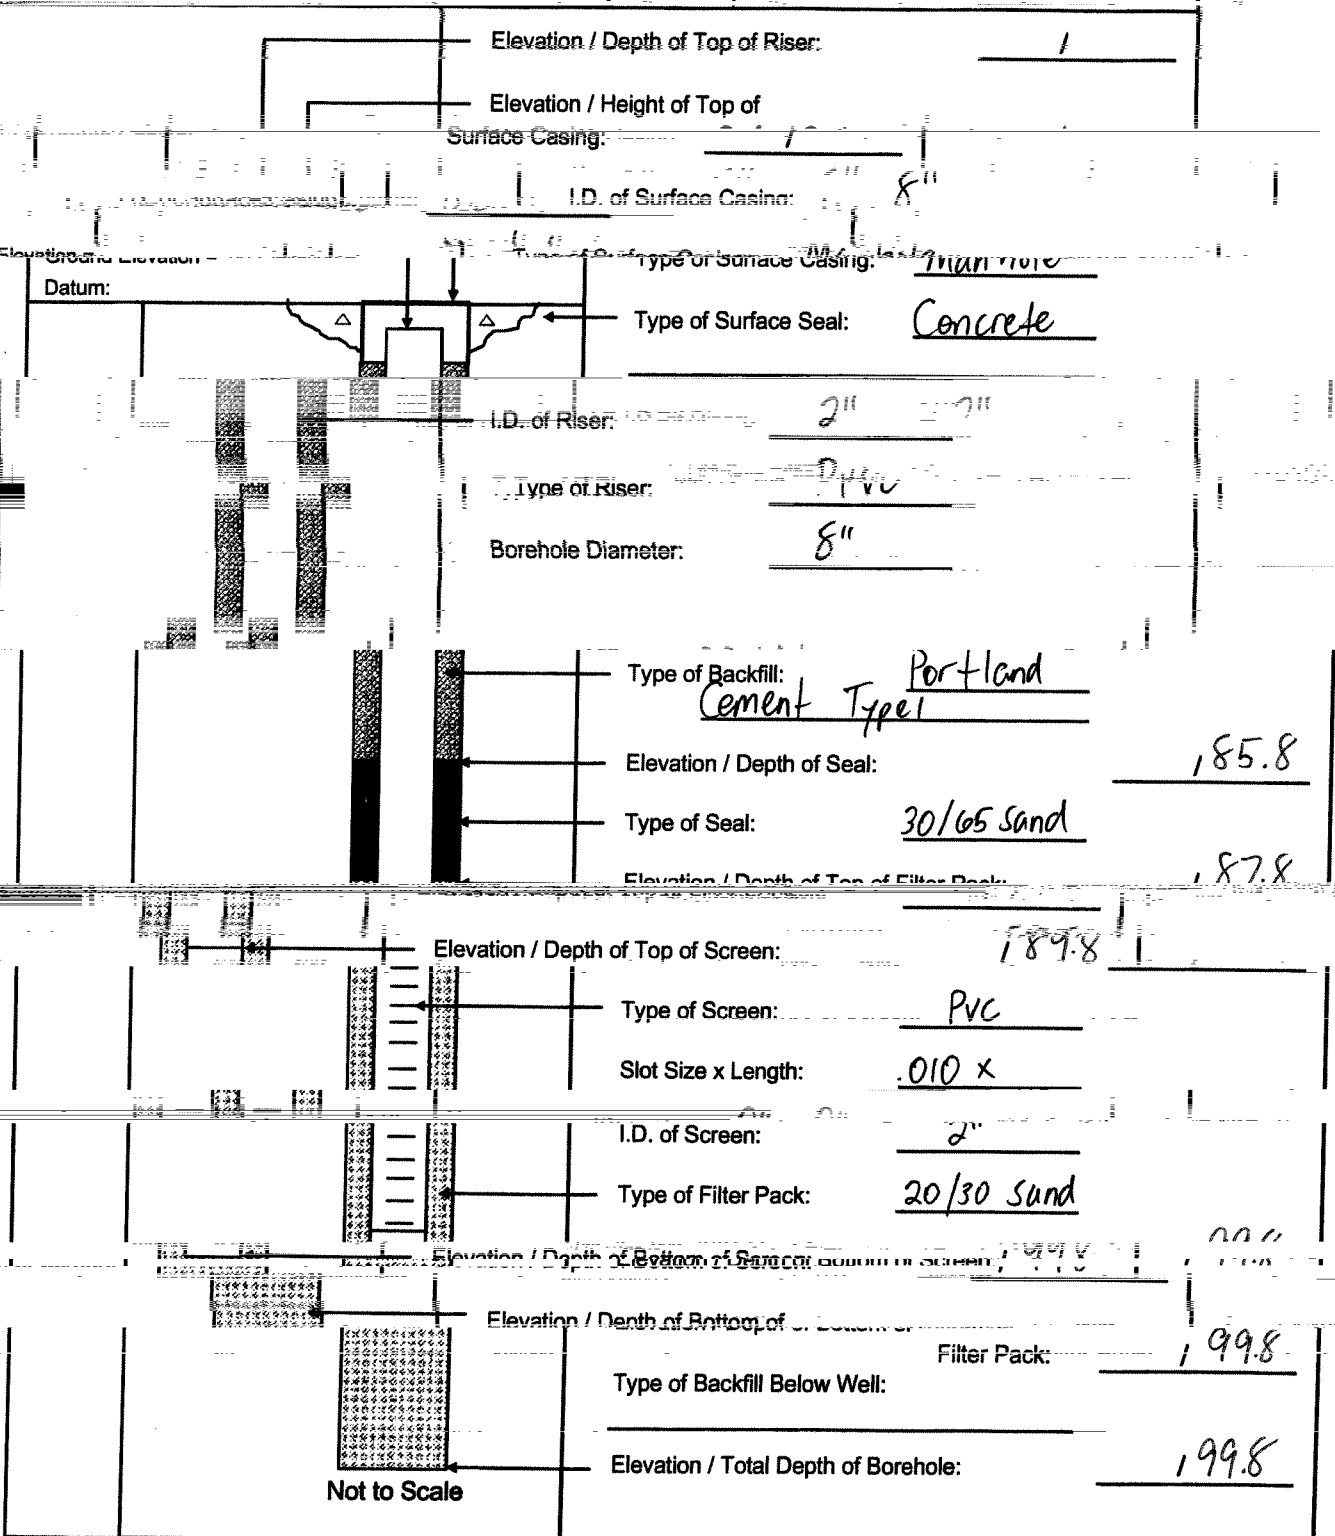 Elevation / Depth of Top of Riser: /
Elevation / Height of Top of
Surface Casing: /
I.D. of Surface Casing: 8"
Ground Elevation =
Type of Surface Casing: Manhole
Datum:
Type of Surface Seal: Concrete
I.D. of Riser: 2"
Type of Riser: PVC
Borehole Diameter: 8"
Type of Backfill: Portland
Cement Type 1
Elevation / Depth of Seal: / 85.8
Type of Seal: 30/65 Sand
Elevation / Depth of Top of Filter Pack: / 87.8
Elevation / Depth of Top of Screen: / 89.8
Type of Screen: PVC
Slot Size x Length: .010 x
I.D. of Screen: 2"
Type of Filter Pack: 20/30 Sand
Elevation / Depth of Bottom of Screen:
Elevation / Depth of Bottom of
Filter Pack: / 99.8
Type of Backfill Below Well:
Elevation / Total Depth of Borehole: / 99.8
Not to Scale